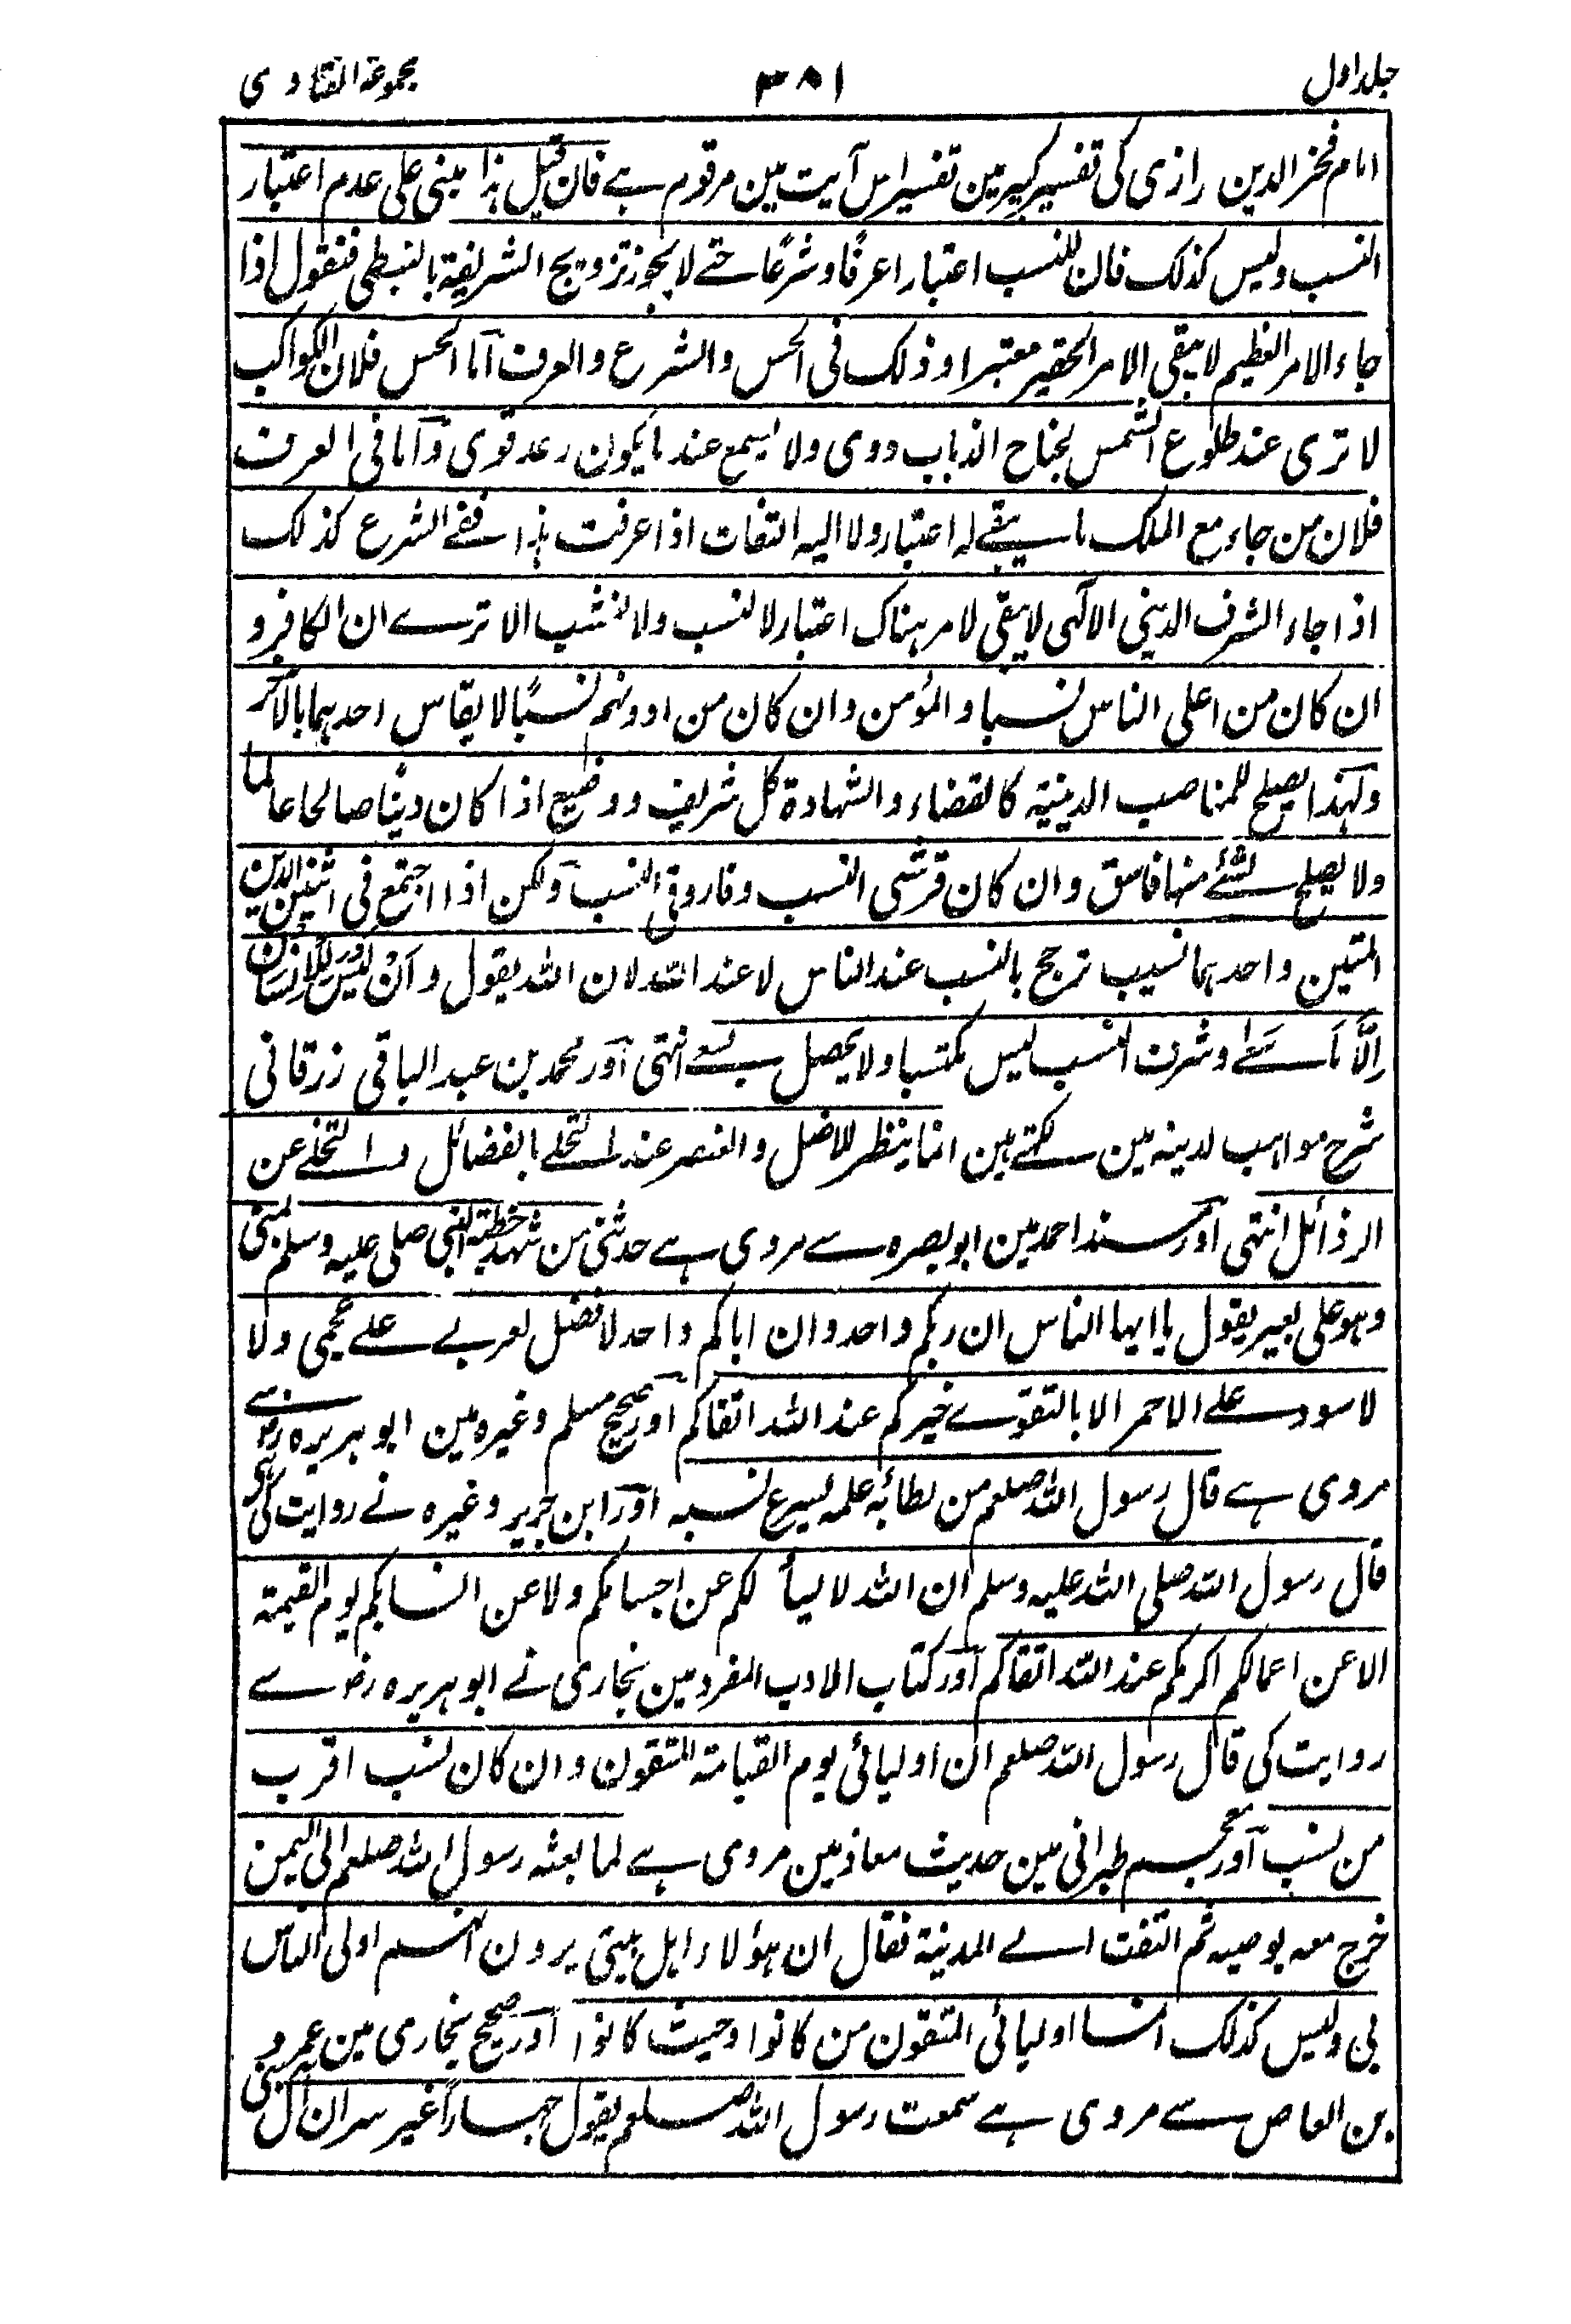 جلد اول ۳۸۱ مجموعۃ الفتاوی
امام فخر الدین رازی کی تفسیر کبیر مین تفسیر اس آیت مین مرقوم ہے فان قیل ہذا مبنی علی عدم اعتبار
النسب ولیس کذلک فان للنسب اعتبارا عرفًا وشرعًا حتے لا یجوز تزویج الشریفۃ بالنبطی فنقول اذا
جاء الامر العظیم لا یبقی الامر الحقیر معتبرا وذلک فی الحس والشرع والعرف اما الحس فلان الکواکب
لا تری عند طلوع الشمس لجناح الذباب دوی ولا یسمع عند ما یکون رعد قوی واما فی العرف
فلان من جاء مع الملک ما یبقے لہ اعتبار ولا الیہ التفات اذا عرفت ہذا ففے الشرع کذلک
اذا جاء الشرف الدینی الالٓہی لا یبقی لامر ہناک اعتبار لا لنسب ولا لنشب الا ترے ان الکافر و
ان کان من اعلی الناس نسبا والمؤمن وان کان من ادونہم نسبًا لا یقاس احدہما بالآخر
ولہذا یصلح للمناصب الدینیۃ کالقضاء والشہادۃ کل شریف ووضیع اذا کان دینًا صالحا عالما
ولا یصلح لشئے منہا فاسق وان کان قرشی النسب وفاروقی النسب ولکن اذا اجتمع فی اثنین الدین
المتین واحدہما نسیب ترجح بالنسب عند الناس لا عند اللہ لان اللہ یقول وَاَنْ لَیْسَ لِلْاِنْسَانِ
اِلَّا مَا سَعٰے وشرف النسب لیس مکتسبا ولا یحصل بسعے انتہی اور محمد بن عبد الباقی زرقانی
شرح مواہب لدینہ مین لکہتے ہین انما ینظر للاصل والعنصر عند التحلے بالفضائل والتخلے عن
الرذائل انتہی اور مسند احمد مین ابو بصرہ سے مروی ہے حدثنی من شہد خطبۃ النبی صلی علیہ وسلم بمنی
وہو علی بعیر یقول یا ایہا الناس ان ربکم واحد وان اباکم واحد لا فضل لعربے علے عجمی ولا
لاسود علے الاحمر الا بالتقوے خیرکم عند اللہ اتقاکم اور صحیح مسلم وغیرہ مین ابو ہریرہ رض سے
مروی ہے قال رسول اللہ صلعم من بطأ بہ علمہ لم یسرع نسبہ اور ابن جریر وغیرہ نے روایت کی
قال رسول اللہ صلی اللہ علیہ وسلم ان اللہ لا یسألکم عن احسابکم ولا عن انسابکم یوم القیمۃ
الا عن اعمالکم اکرمکم عند اللہ اتقاکم اور کتاب الادب المفرد مین بخاری نے ابو ہریرہ رض سے
روایت کی قال رسول اللہ صلعم ان اولیائی یوم القیامۃ المتقون وان کان نسب اقرب
من نسب اور معجم طبرانی مین حدیث معاذ مین مروی ہے لما بعثہ رسول اللہ صلعم الی الیمن
خرج معہ یوصیہ ثم التفت الے المدینۃ فقال ان ہؤلاء اہل بیتی یرون انہم اولی الناس
بی ولیس کذلک انما اولیائی المتقون من کانوا وحیث کانوا اور صحیح بخاری مین عمرو
بن العاص سے مروی ہے سمعت رسول اللہ صلعم یقول جہارا غیر سر ان آل بنی